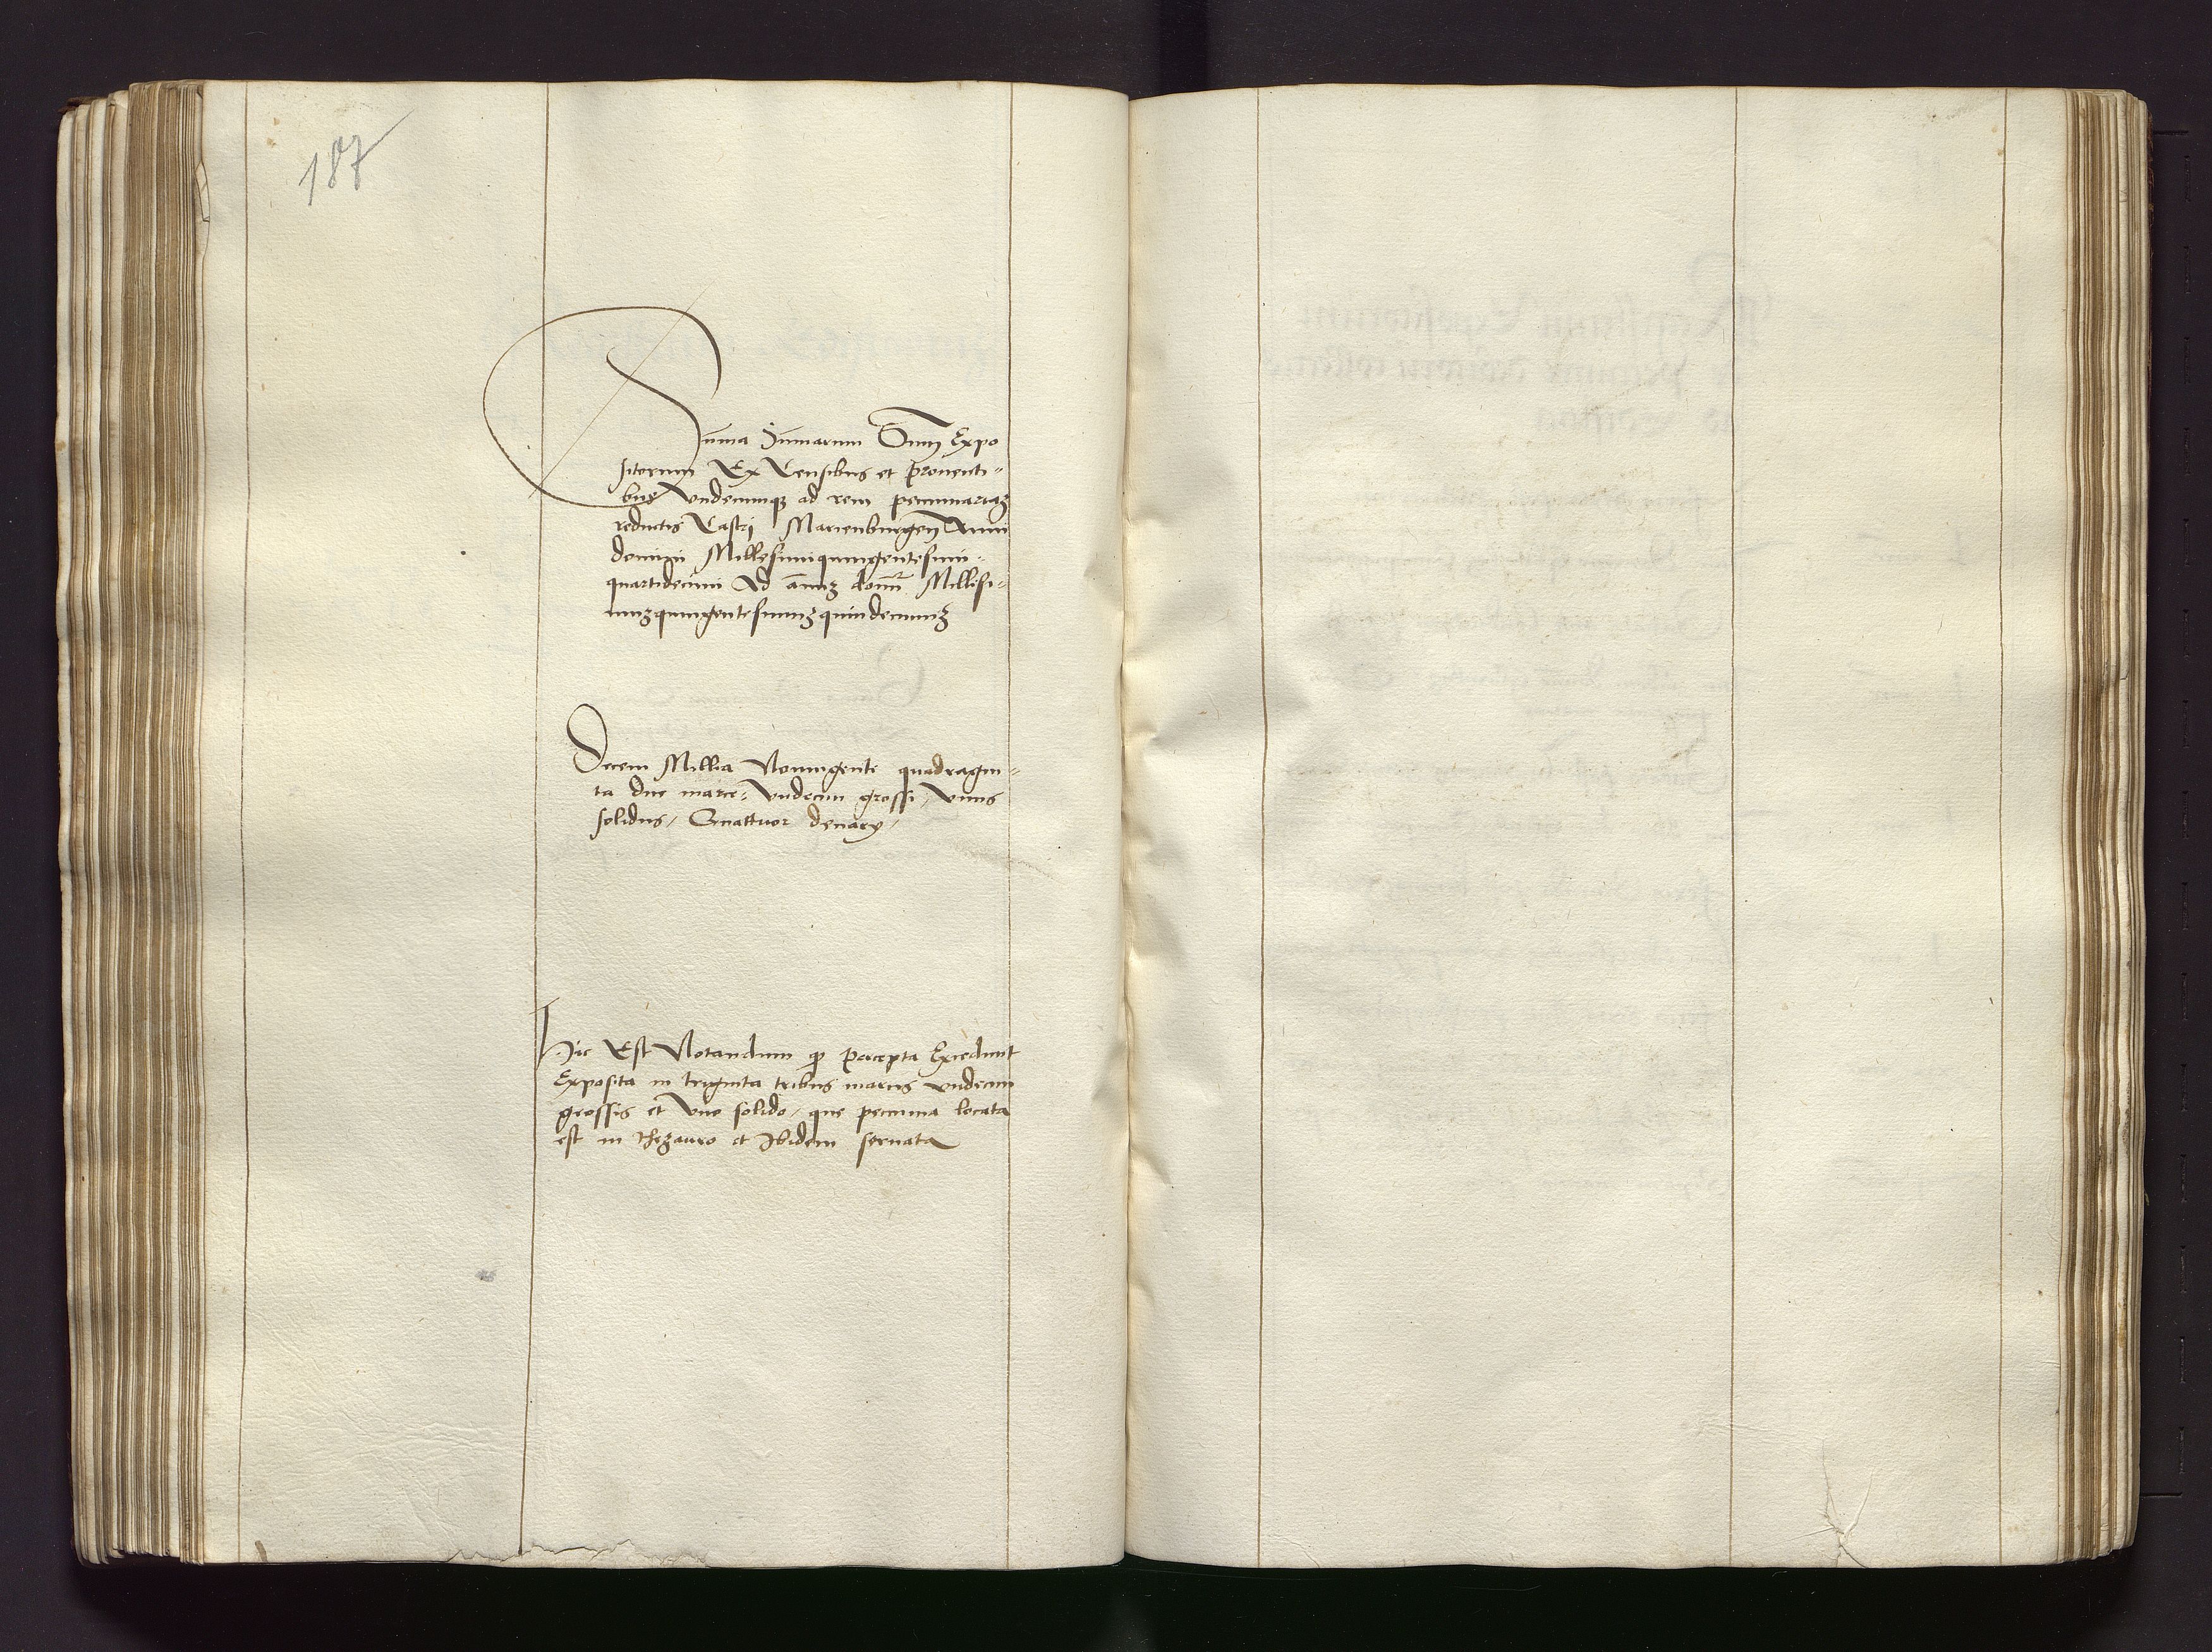 187
Suma Sumarum Omnium Expo
sitorum Ex Censibus et Prouenti-
bus Vndecunque ad rem pecuniariam
reductis Castri Marienburgen Anni
domini Millesimiquingentesimi-
quartidecimi Ad annum domini Millesi-
mumquingentesimumquindecimum
Decem Millia Noningente quadragin-
ta due marce, Vndecim grossi, Vnus
solidus, Quattuor denarij,
Hic Est Notandum quod Percepta Excedunt
Exposita in triginta tribus marcis vndecim
grossis et Vno solido, que pecunia locata
est in thezauro et Ibidem seruata